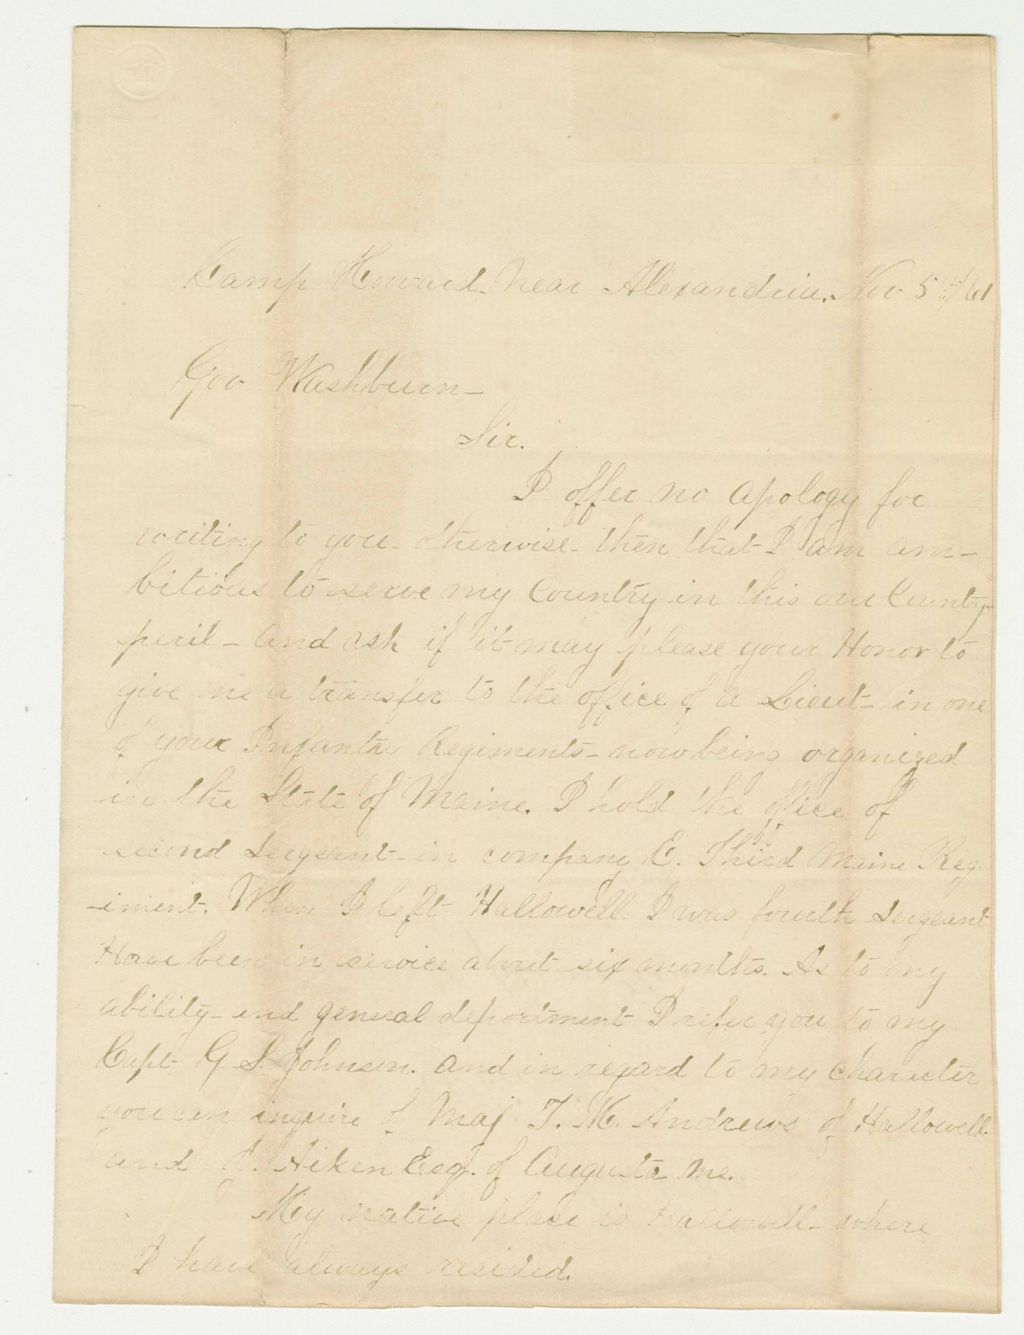 Camp Howard. Near Alexandria. Nov 5th/61
Gov Washburn—
Sir.
I offer no apology for
writing to you- otherwise- then that I am am-
bitious to serve my Country in this our Country
peril- and ask if it may please your Honor to
give me a transfer to the office of a Lieut- in one
of your Infantry Regiments- now being organized
in the State of Maine. I hold the office of
second Sergeant- in company E. Third Maine Reg-
-iment. When I left Hallowell I was fourth Sergeant
Have been in service about six months. As to my
ability- and general deportment I refer you to my
Capt G S. Johnson. and in regard to my character
you can inquire of Maj T. H. Andrews of Hallowell.
and J. Aiken Esq. of Augusta Me.
My native place is Hallowell- where
I have always resided.